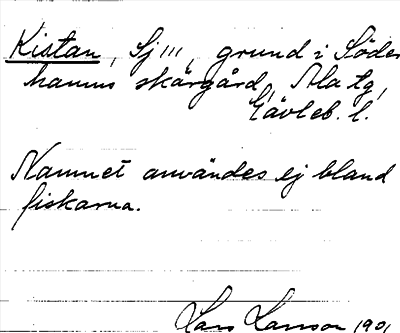 Kistan, Sj ///, grund i Söder
hamns skärgård, Ala tg,
Gävleb. l.
Namnet användes ej bland
fiskarna.
Lars Larsson 190